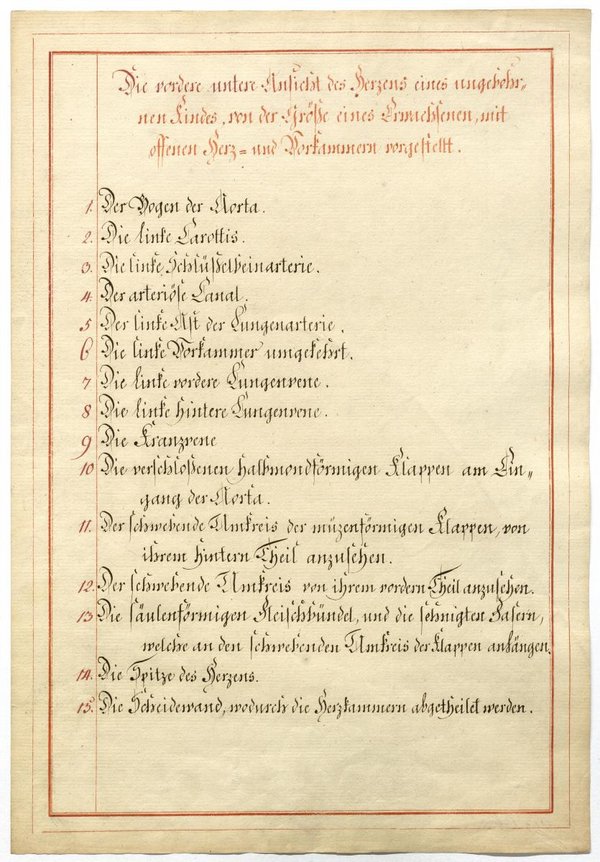 Die vordere untere Ansicht des Herzens eines ungebohr=
nen Kindes, von der Größe eines Erwachsenen, mit
offenen Herz= und Vorkammern vorgestellt.
1. Der Bogen der Aorta.
2. Die linke Carottis.
3. Die linke Schlüßelbeinarterie.
4. Der arteriöse Canal.
5 Der linke Ast der Lungenarterie.
6 Die linke Vorkammer umgekehrt.
7 Die linke vordere Lungenvene.
8 Die linke hintere Lungenvene.
9 Die Kranzvene
10 Die verschloßenen halbmondförmigen Klappen am Ein=
gang der Aorta.
11. Der schwebende Umkreis der müzenförmigen Klappen, von
ihrem hintern Theil anzusehen.
12. Der schwebende Umkreis von ihrem vordern Theil anzusehen.
13 Die säulenförmigen Fleischbündel, und die sehnigten Fasern,
welche an den schwebenden Umkreis der Klappen anhängen.
14. Die Spitze des Herzens.
15. Die Scheidewand, wodurch die Herzkammern abgetheilet werden.